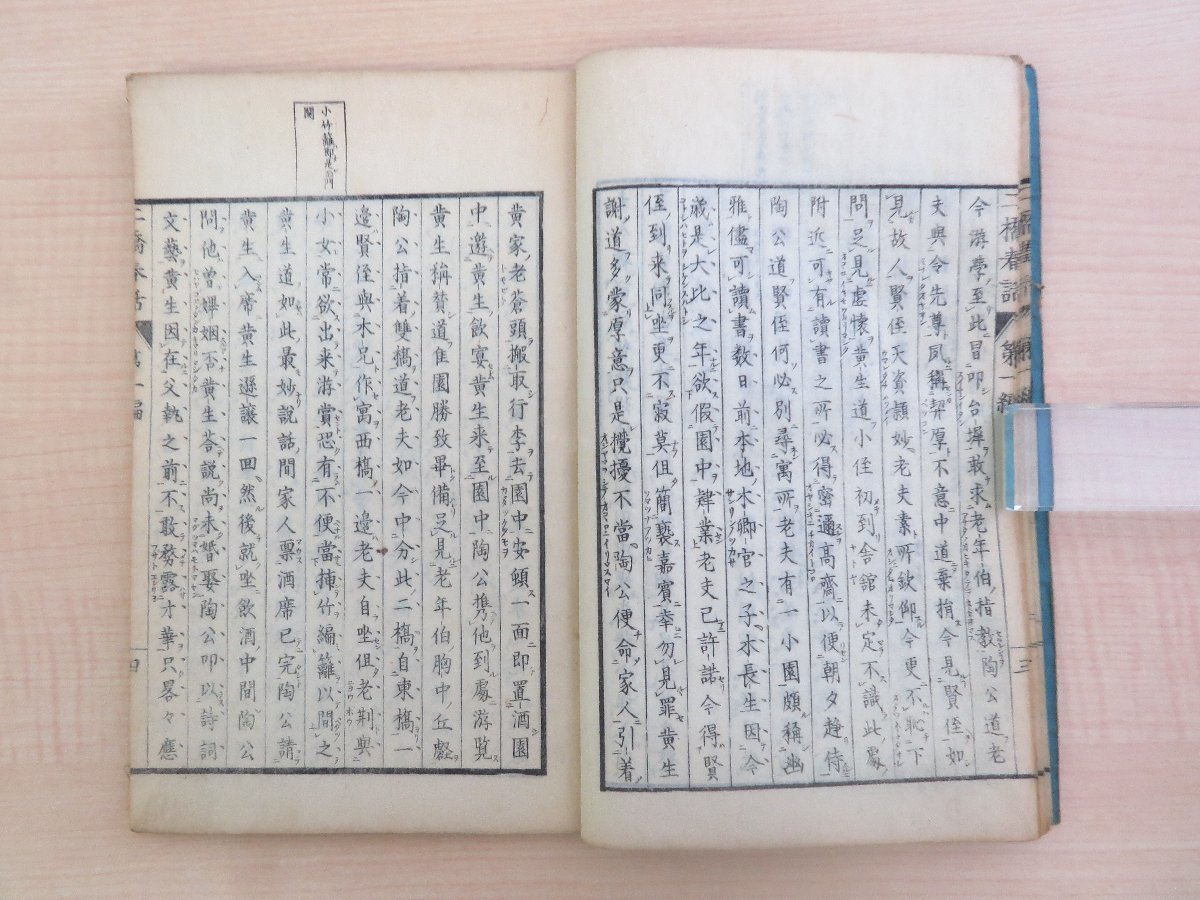 今游學至此冒叩台墀敢求老年伯指教陶公道老
夫與令先尊夙衢契厚不意中道棄捐今見賢侄如
見故人賢侄天資穎妙老夫素所欽仰今更不恥下
問足見虛懷黄生道小侄初到舎舘未定不識此處
附近可有讀書之所必得密邇高齋以便朝夕趨侍
陶公道賢侄何必別尋寓所老夫有一小園頗稱幽
雅儘可讀書数日前本地木卿官之子木長生因今
歳是大比之年欲假園中肄業老夫已許諾今得賢
侄到来同坐更不寂莫但簡褻嘉賓幸勿見罪黄生
謝道多蒙厚意只是攪擾不當陶公便命家人引着
二橋春話 第一編 三
黄家老蒼頭搬取行李去園中安頓一面即置酒園
中邀黄生飲宴黄生来至園中陶公携他到處游覧
黄生稱賛道隹園勝致畢備足見老年伯胸中丘壑
陶公指着雙橋道老夫如今中分此二橋自東橋一
邉賢侄與木兄作寓西橋一邉老夫自坐但老荆與
小女常欲出来游賞恐有不便當揷竹編籬以間之
黄生道如此最妙說話間家人禀酒席已完陶公請
黄生入席黄生遜讓一回然後就坐飲酒中間陶公
問他曽嬋姻否黄生荅說尚未婚娶陶公叩以詩詞
文藝黄生因在父執之前不敢發露才華只畧々應
二橋春話 第一編 四
小竹籬即是鴻門
関